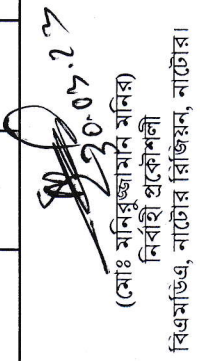 30.03.23
(মোঃ মনিরুজ্জামান মনির)
নির্বাহী প্রকৌশলী
বিএমডিএ, নাটোর রিজিয়ন, নাটোর।